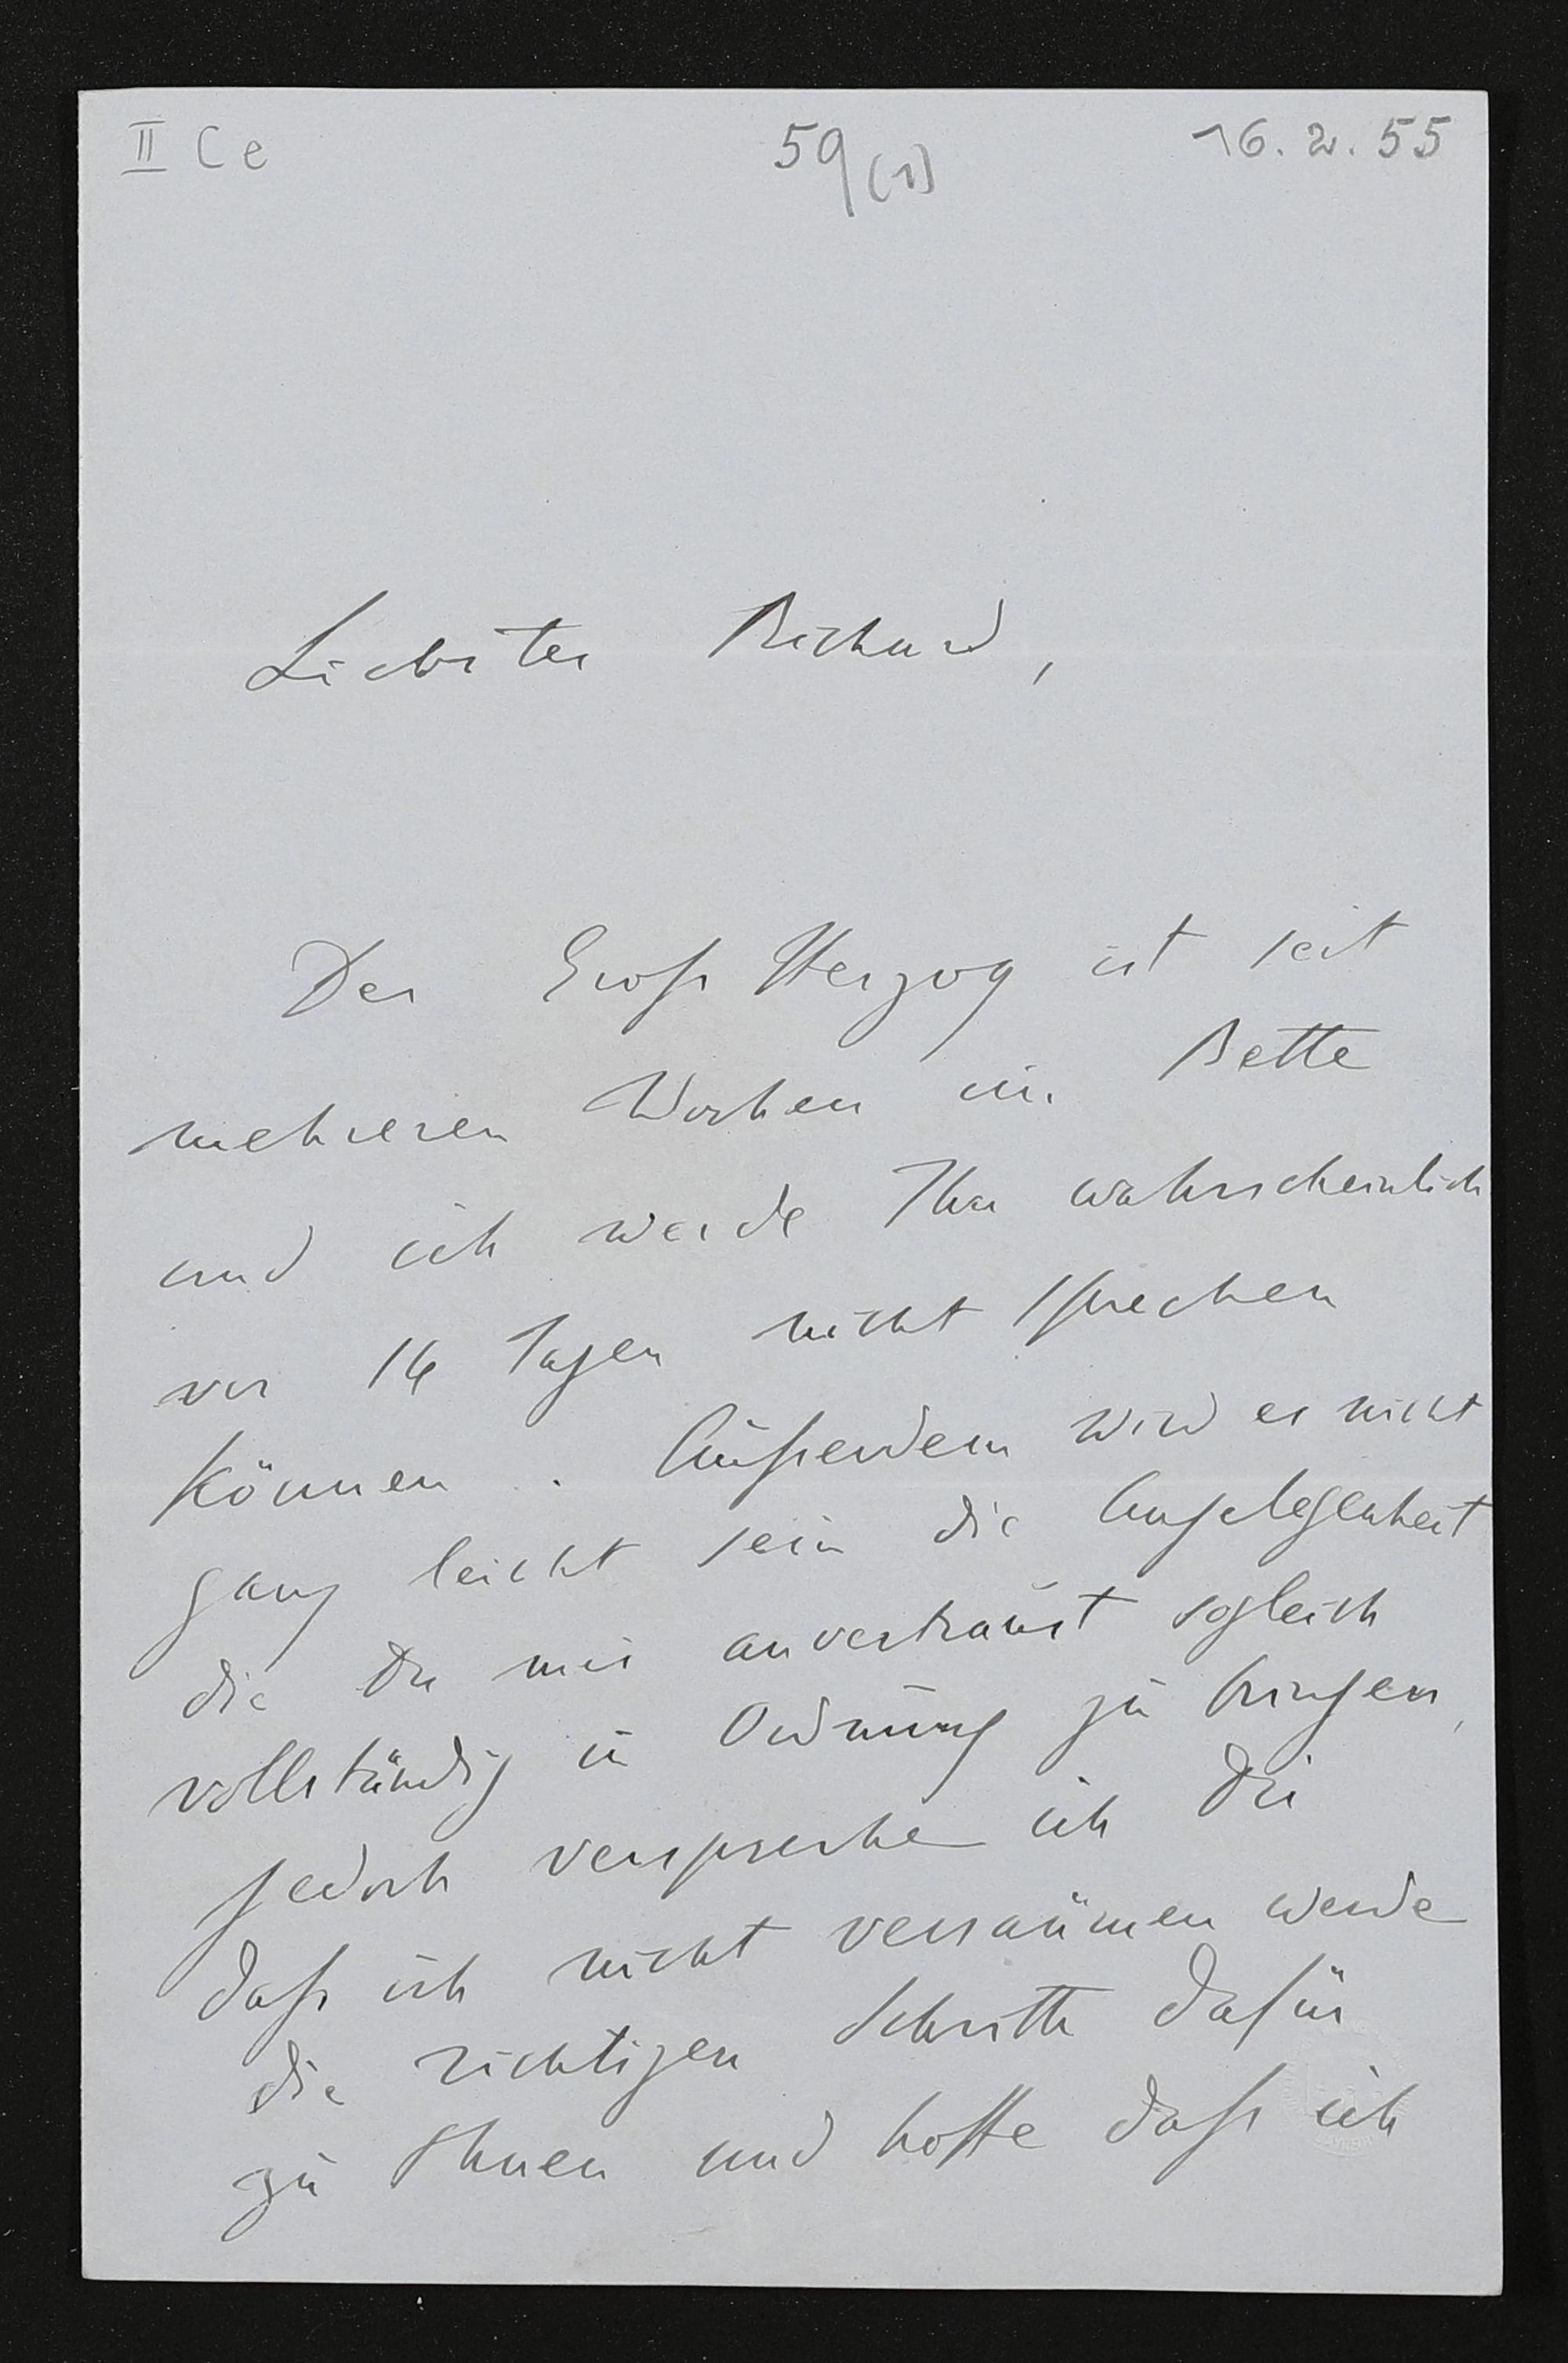 II Ce 59(1) 16. 2. 55
Liebster Richard,
Der Gross Herzog ist seit
mehreren Wochen im Bette
und ich werde Ihn wahrscheinlich
vor 14 Tagen nicht sprechen
können. Außerdem wird es nicht
ganz leicht sein die Angelegenheit
die Du mir anvertraust sogleich
vollständig in Ordnung zu bringen,
jedoch verspreche ich Dir
daß ich nicht versäumen werde
die richtigen Schritte dafür
zu thuen und hoffe daß ich